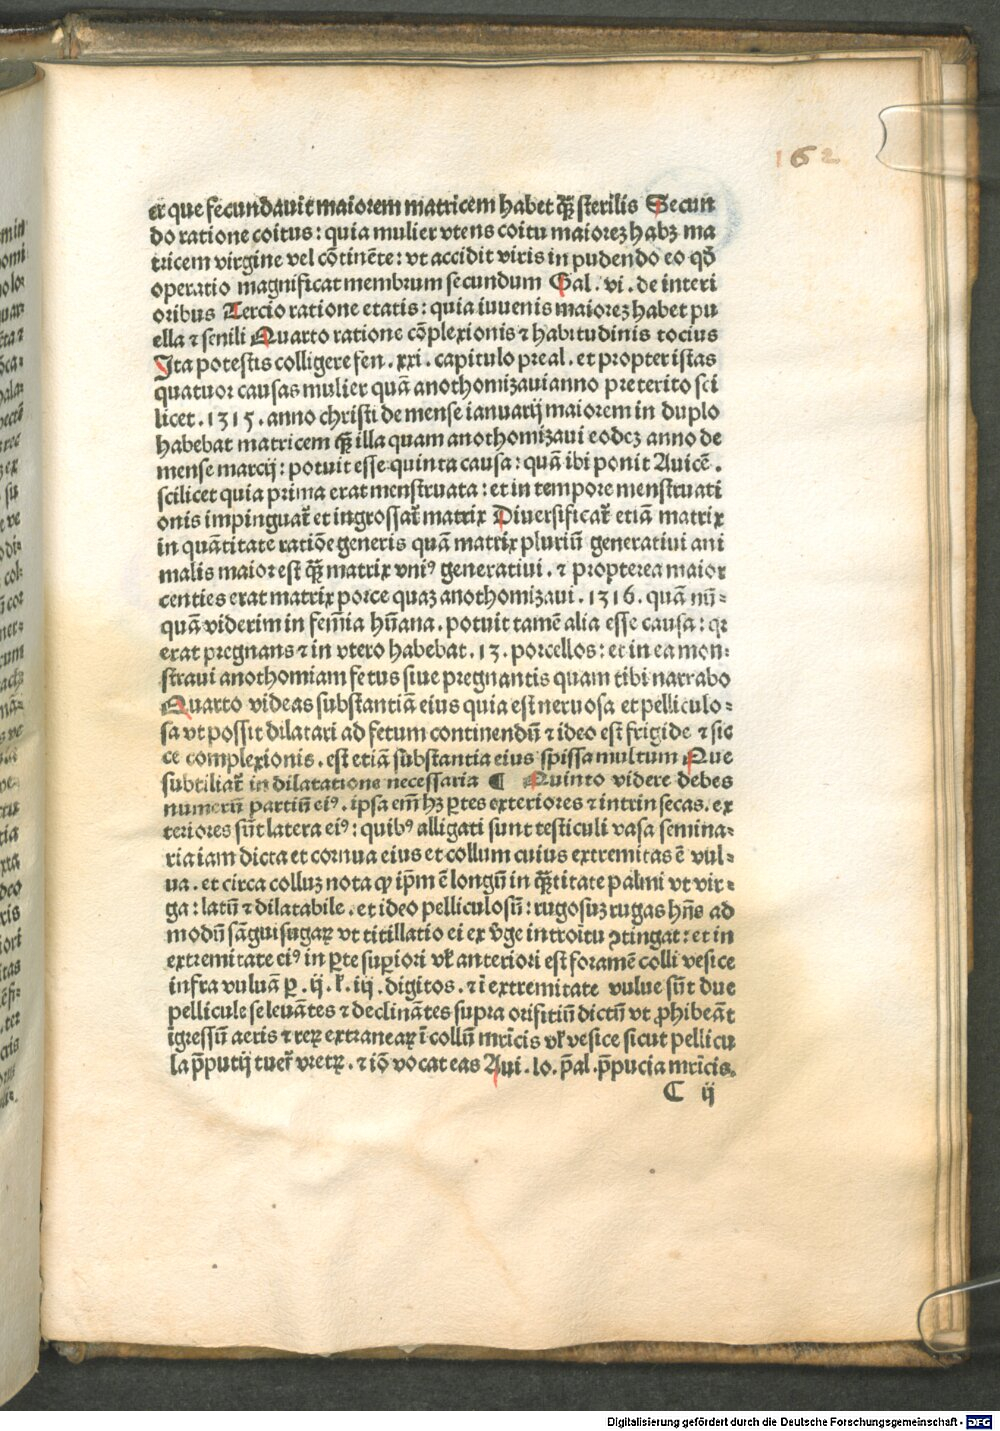 162
er que fecundauit maiorem matricem habet q̃ꝫ sterilis Secun
do ratione coitus: quia mulier vtens coitu maiorez habꝫ ma
tricem virgine vel cōtinēte: vt accidit viris in pudendo eo qd̄
operatio magnificat membrum secundum Gal. vi. de interi
oribus Tercio ratione etatis: quia iuuenis maiorez habet pu
ella ⁊ senili Quarto ratione cōplexionis ⁊ habitudinis tocius
Ita potestis colligere fen. xxi. capitulo preal. et propter istas
quatuor causas mulier quā anothomizaui anno preterito sci
licet. 1315. anno christi de mense ianuarij maiorem in duplo
habebat matricem q̃ꝫ illa quam anothomizaui eodez anno de
mense marcij: potuit esse quinta causa: quā ibi ponit Auicē.
scilicet quia prima erat menstruata: et in tempore menstruati
onis impinguat̄ et ingrossat̄ matrix Diuersificat̄ etiā matrix
in quātitate ratiōe generis quā matrix pluriū generatiui ani
malis maior est q̃ꝫ matrix vniꝰ generatiui. ⁊ propterea maior
centies erat matrix porce quaz anothomizaui. 1316. quā nū-
quā viderim in femīa hūana. potuit tamē alia esse causa: qr
erat pregnans ⁊ in vtero habebat. 13. porcellos: et in ea mon-
straui anothomiam fetus siue pregnantis quam tibi narrabo
Quarto videas substantiā eius quia est neruosa et pelliculo-
sa vt possit dilatari ad fetum continendū ⁊ ideo est frigide ⁊ sic
ce complexionis. est etiā substantia eius spissa multum Que
subtiliat̄ in dilatatione necessaria ¶ Quinto videre debes
numerū partiū eiꝰ. ipsa em̄ hꝫ ꝑtes exteriores ⁊ intrinsecas. ex
teriores sūt latera eiꝰ: quibꝰ alligati sunt testiculi vasa semina-
ria iam dicta et cornua eius et collum cuius extremitas ē vul-
ua. et circa colluz nota ꝙ ip̄m ē longū in q̃ꝫtitate palmi vt vir-
ga: latū ⁊ dilatabile. et ideo pelliculosū: rugosuz rugas hn̄s ad
modū sāguisugaꝝ vt titillatio ei ex v̄ge introitu ꝯtingat: et in
extremitate eiꝰ in ꝑte sup̄iori vꝉ anteriori est foramē colli vesice
infra vuluā ꝑ. ij. ꝉ. iij. digitos. ⁊ ī extremitate vulue sūt due
pellicule se leuātes ⁊ declinātes supra orifitiū dictū vt ꝓhibeāt
īgressū aeris ⁊ reꝝ extraneaꝝ ī collū mr̄icis vꝉ vesice sicut pellicu
la p̄putij tuet̄ vretꝝ. ⁊ iō vocat eas Aui. lo. p̄al. p̄pucia mr̄icis.
C ij
Digitalisierung gefördert durch die Deutsche Forschungsgemeinschaft - DFG